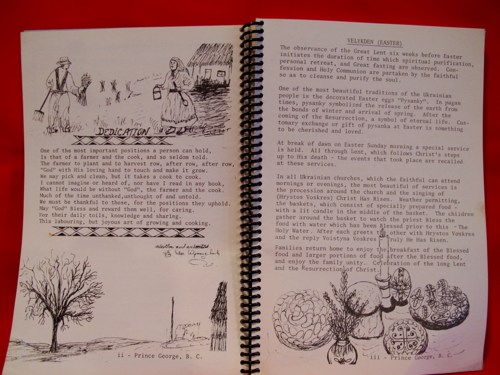 DEDICATION
One of the most important positions a person can hold,
Is that of a farmer and the cook, and no seldom told.
The farmer to plant and to harvest row, after row, after row,
"God" with His loving hand to touch and make it grow.
We may pick and clean, but it takes a cook to cook
I cannot imagine or heard of, nor have I read in any book,
What life would be without "God", the farmer and the cook.
Much of the time unthanked, unthought of and untold.
We must be thankful to these, for the positions they uphold.
May "God" Bless and reward them well, for caring.
For their daily toils, knowledge and sharing.
This labouring, but joyous art of growing and cooking.
ii - Prince George, B. C.
VELYKDEN (EASTER)
The observance of the Great Lent six weeks before Easter
initiates the duration of time which spiritual purification,
personal retreat, and Great fasting are observed. Con-
fession and Holy Communion are partaken by the faithful
so as to cleanse and purify the soul.
One of the most beautiful traditions of the Ukrainian
people is the decorated Easter eggs "Pysanky". In pagan
times, pysanky symbolized the release of the earth from
the bonds of winter and arrival of spring. After the
coming of the Resurrection, a symbol of eternal life. Cus-
tomary exchange or gift of pysanka at Easter is something
to be cherished and loved.
At break of dawn on Easter Sunday morning a special service
is held. All through Lent, which follows Christ's steps
up to His death - the events that took place are emulated
at these services.
In all Ukrainian churches, which the faithful can attend
mornings or evenings, the most beautiful of services is
the procession around the church and the singing of
(Hrystos Voskres) Christ Has Risen. Weather permitting,
the baskets, which consist of specially prepared food -
with a lit candle in the middle of the basket. The children
gather around the basket to watch the priest Bless the
food with water which has been Blessed prior to this - The
Holy Water. After each greets the other with Hrystos Voskres
and the reply Voistynu Voskres - Truly He Has Risen.
Families return home to enjoy the breakfast of the Blessed
food and larger portions of food after the Blessed food,
and enjoy the family unity. Celebration of the long Lent
and the Resurrection of Christ.
iii - Prince George, B. C.